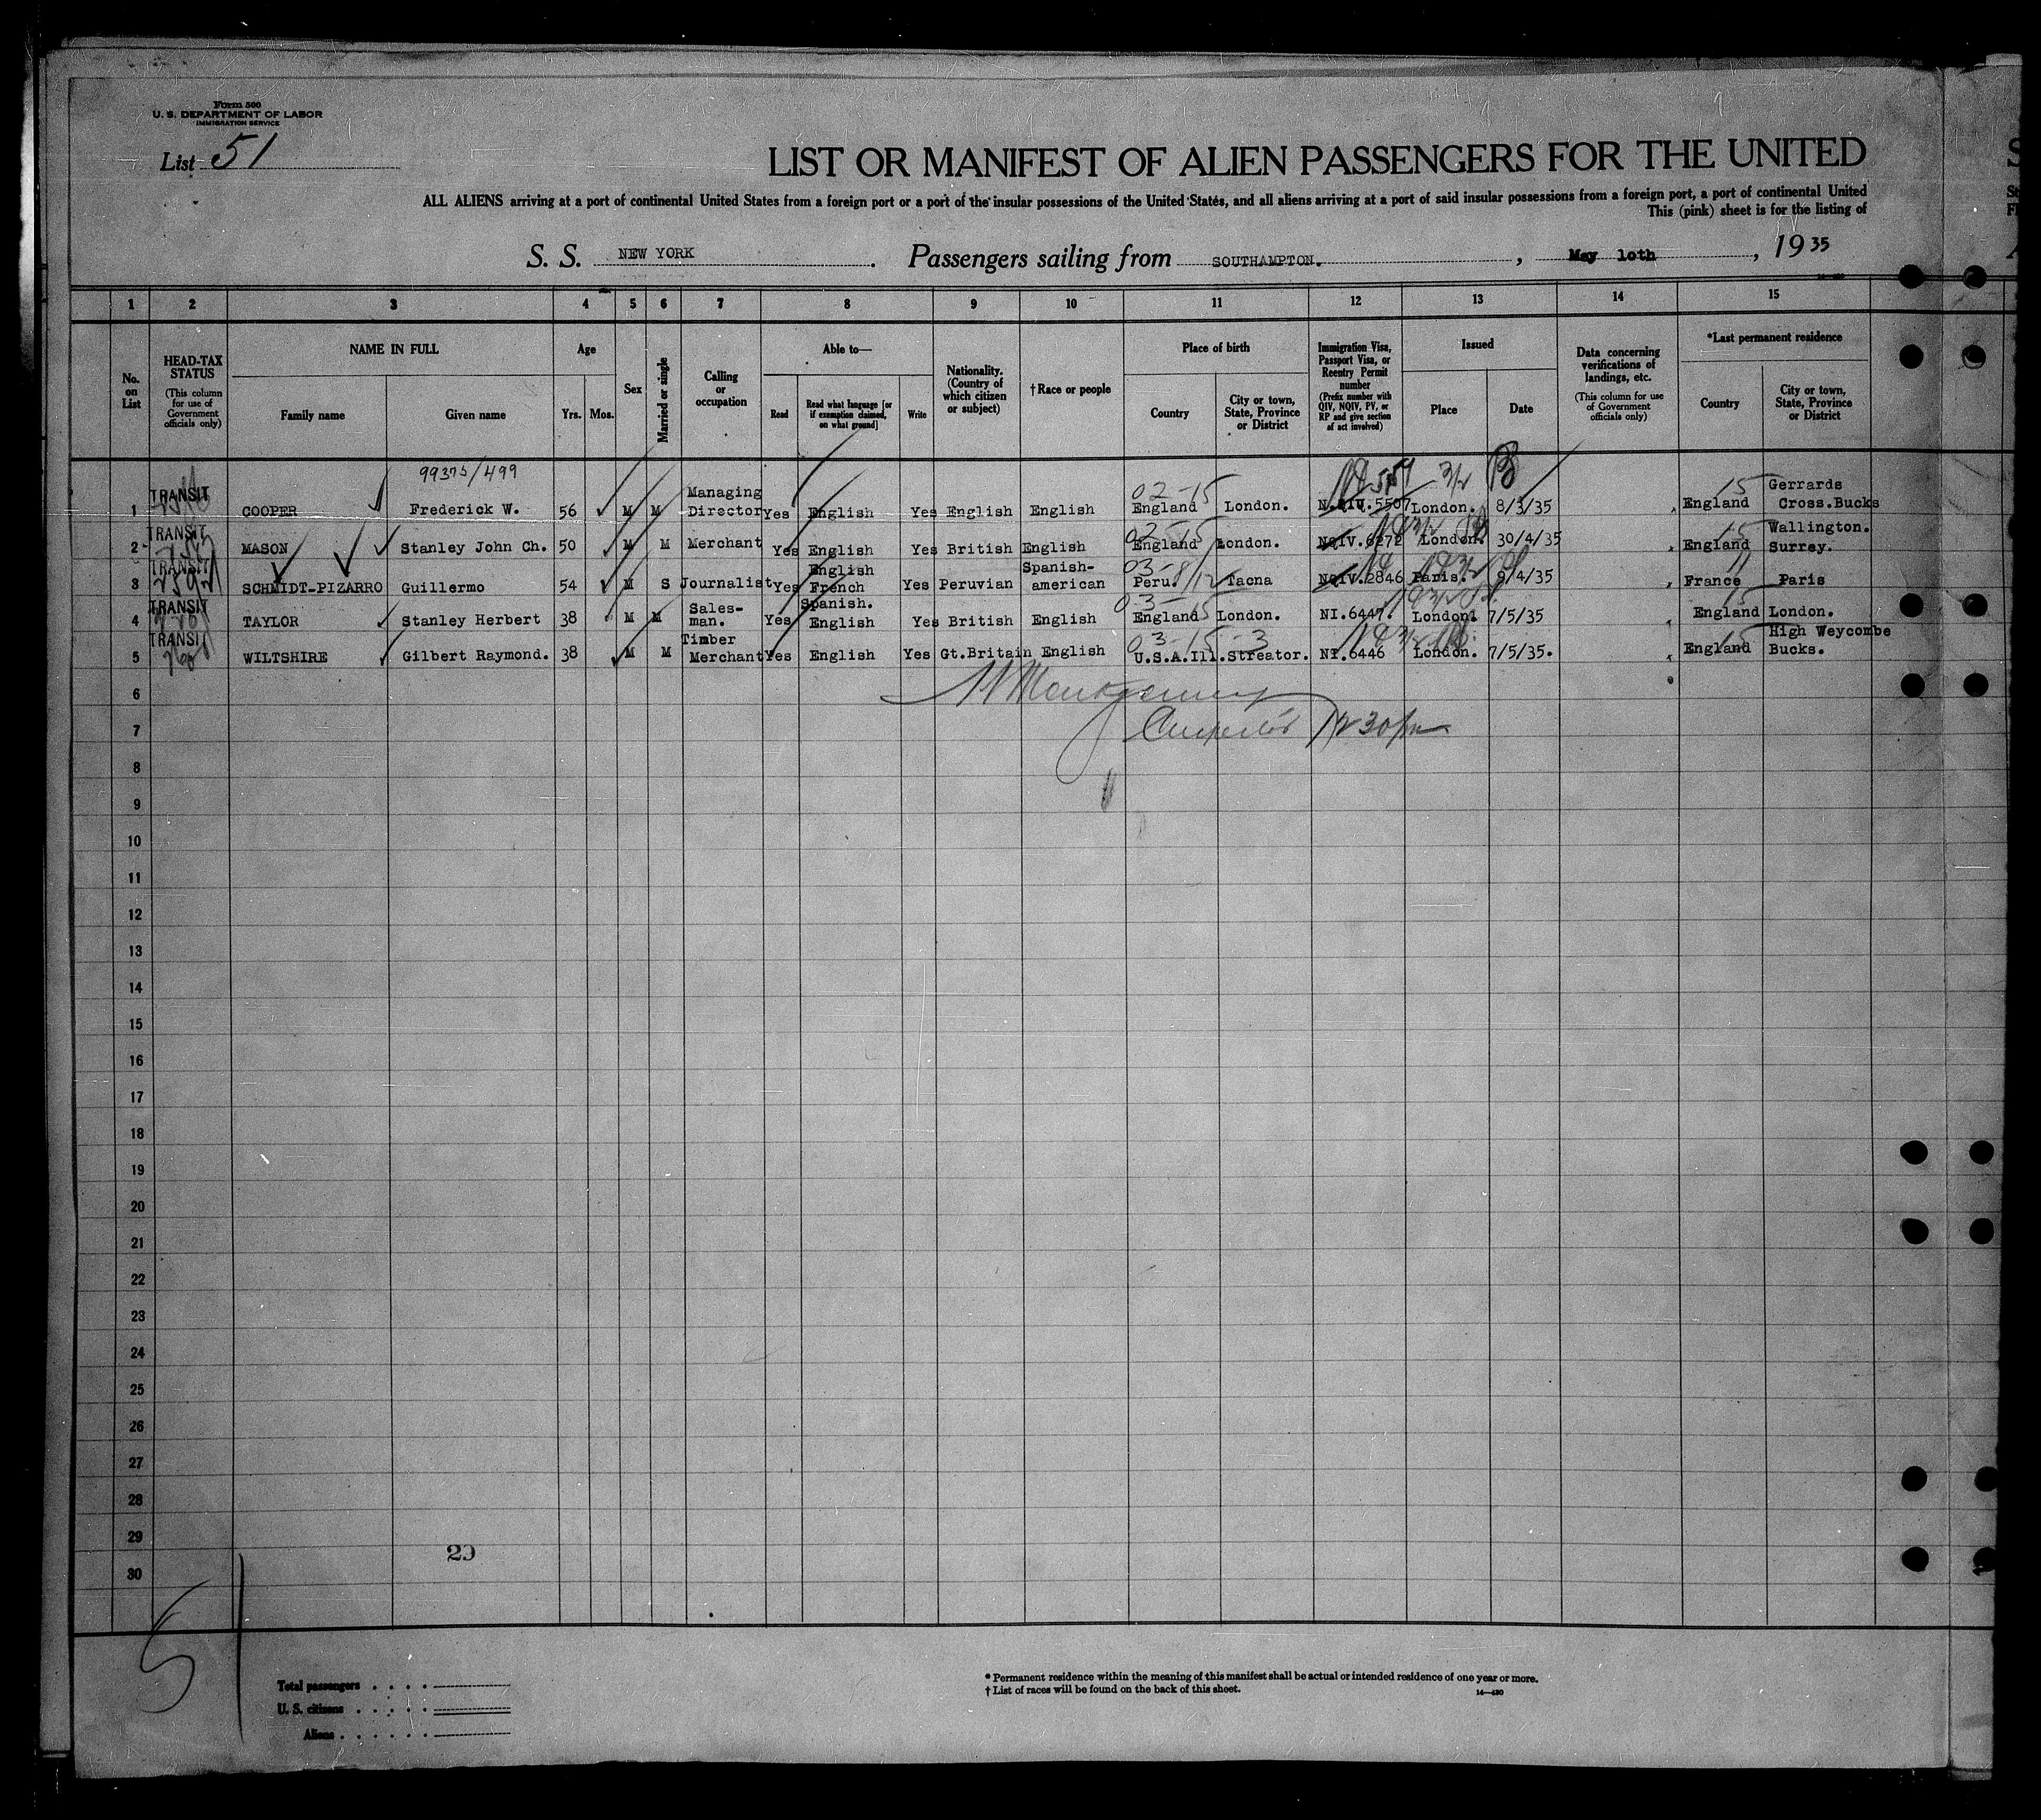 Form 500
U. S. DEPARTMENT OF LABOR
IMMIGRATION SERVICE
List 51
LIST OR MANIFEST OF ALIEN PASSENGERS FOR THE UNITED
ALL ALIENS arriving at a port of continental United States from a foreign port or a port of the insular possessions of the United States, and all aliens arriving at a port of said insular possessions from a foreign port, a port of continental United
This (pink) sheet is for the listing of
S. S. NEW YORK. Passengers sailing from SOUTHAMPTON., May 10th, 19 35
1 2 3 4 5 6 7 8 9 10 11 12 13 14 15
No. on List
HEAD-TAX STATUS
(This column for use of Government officials only)
NAME IN FULL
Family name Given name
Age
Yrs. Mos.
Sex
Married or single
Calling or occupation
Able to—
Read Read what language [or if exemption claimed, on what ground] Write
Nationality. (Country of which citizen or subject)
†Race or people
Place of birth
Country City or town, State, Province or District
Immigration Visa, Passport Visa, or Reentry Permit number
(Prefix number with QIV, NQIV, PV, or RP and give section of act involved)
Issued
Place Date
Data concerning verifications of landings, etc.
(This column for use of Government officials only)
*Last permanent residence
Country City or town, State, Province or District
99375/499
1 TRANSIT COOPER Frederick W. 56 M M Managing Director Yes English Yes English English 02-15 England London. N.QIV.5507 London. 8/3/35 15 England Gerrards Cross.Bucks
2 TRANSIT MASON Stanley John Ch. 50 M M Merchant Yes English Yes British English 02-15 England London. NQIV.6272 London. 30/4/35 15 England Wallington. Surrey.
3 TRANSIT SCHMIDT-PIZARRO Guillermo 54 M S Journalist Yes English French Spanish. Yes Peruvian Spanish-american 03-8/12 Peru. Tacna NQIV.2846 Paris. 9/4/35 11 France Paris
4 TRANSIT TAYLOR Stanley Herbert 38 M M Sales-man. Yes English Yes British English 03-15 England London. NI.6447. London. 7/5/35 15 England London.
5 TRANSIT WILTSHIRE Gilbert Raymond. 38 M M Timber Merchant Yes English Yes Gt.Britain English 03-15-3 U.S.A.Ill. Streator. NI.6446 London. 7/5/35. 15 England High Weycombe Bucks.
6
7
8
9
10
11
12
13
14
15
16
17
18
19
20
21
22
23
24
25
26
27
28
29
29
30
51
Total passengers
U. S. citizens
Aliens
* Permanent residence within the meaning of this manifest shall be actual or intended residence of one year or more.
† List of races will be found on the back of this sheet.
14—430